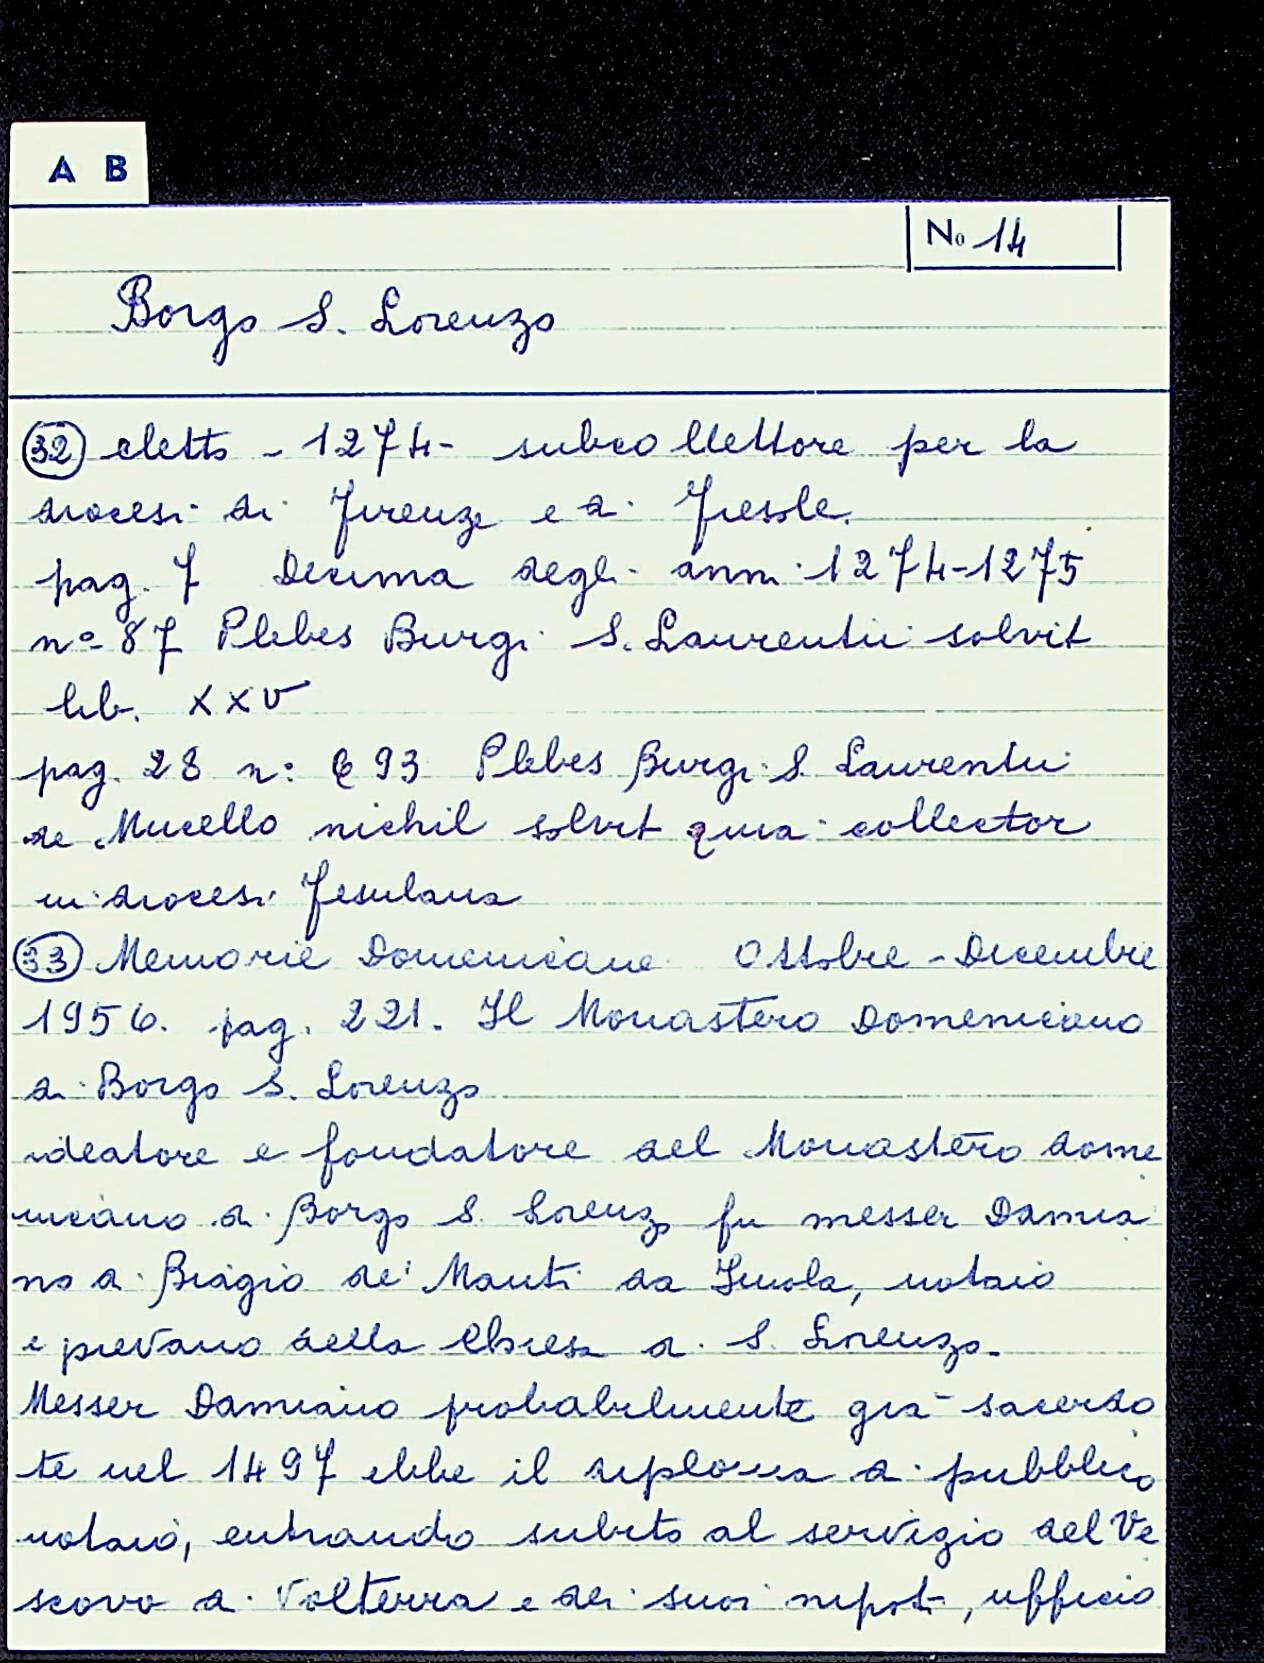 A B
No 14
Borgo S. Lorenzo
32 eletto - 1274 - subcollettore per la
diocesi di Firenze e di Fiesole.
pag. 7 Decima degli anni 1274-1275
n° 87 Plebes Burgi S. Laurentii solvit
lib. XXV
pag. 28 n: 693 Plebes Burgi S. Laurentii
de Mucello nichil solvit quia collector
in diocesi Fesulana
33 Memorie Domenicane Ottobre - Dicembre
1956. pag. 221. Il Monastero Domenicano
di Borgo S. Lorenzo
ideatore e fondatore del Monastero dome
nicano di Borgo S. Lorenzo fu messer Damia
no di Biagio de' Manti da Imola, notaio
e pievano della Chiesa di S. Lorenzo.
Messer Damiano probabilmente già sacerdo
te nel 1497 ebbe il diploma di pubblico
notaio, entrando subito al servizio del Ve
scovo di Volterra e dei suoi nipoti, ufficio